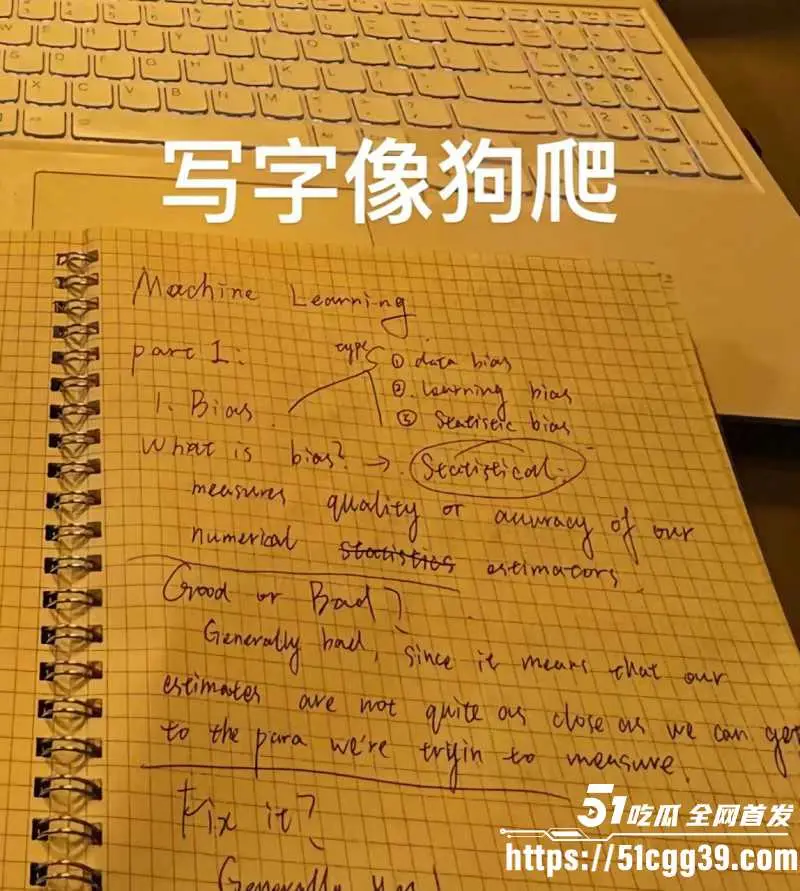 写字像狗爬
Machine Learning
part 1:
type
① data bias
② Learning bias
③ Statistic bias
1. Bias.
What is bias? → Statistical:
measures quality or accuracy of our
numerical statistics estimators.
Good or Bad?
Generally bad, since it means that our
estimates are not quite as close as we can get
to the para we're tryin to measure.
Fix it?
Generally
51吃瓜 全网首发
https://51cgg39.com